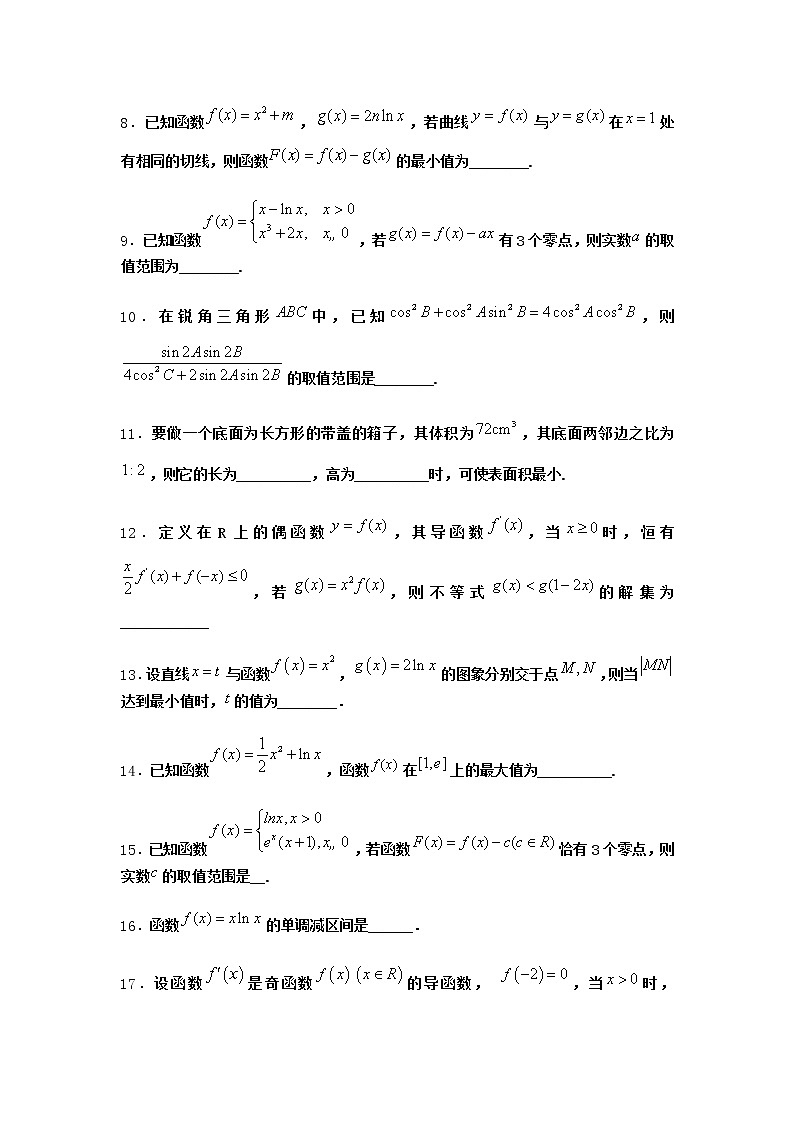 8.已知函数f(x)=x²+m,g(x)=2nln x,若曲线y=f(x)与y=g(x)在x=1处
有相同的切线,则函数F(x)=f(x)-g(x)的最小值为________.
9.已知函数f(x)={x-ln x, x>0
x³+2x, x,, 0,若g(x)=f(x)-ax有3个零点,则实数a的取
值范围为________.
10.在锐角三角形ABC中,已知cos²B+cos²Asin²B=4cos²Acos²B,则
sin2Asin2B
4cos²C+2sin2Asin2B的取值范围是________.
11.要做一个底面为长方形的带盖的箱子,其体积为72cm³,其底面两邻边之比为
1:2,则它的长为__________,高为__________时,可使表面积最小.
12.定义在R上的偶函数y=f(x),其导函数f'(x),当x≥0时,恒有
x/2 f'(x)+f(-x)≤0,若g(x)=x²f(x),则不等式g(x)<g(1-2x)的解集为
____________
13.设直线x=t与函数f(x)=x²,g(x)=2ln x的图象分别交于点M,N,则当|MN|
达到最小值时,t的值为________.
14.已知函数f(x)=1/2 x²+ln x,函数f(x)在[1,e]上的最大值为__________.
15.已知函数f(x)={lnx,x>0
eˣ(x+1),x,, 0,若函数F(x)=f(x)-c(c∈R)恰有3个零点,则
实数c的取值范围是__.
16.函数f(x)=xln x的单调减区间是______.
17.设函数f'(x)是奇函数f(x)(x∈R)的导函数, f(-2)=0,当x>0时,